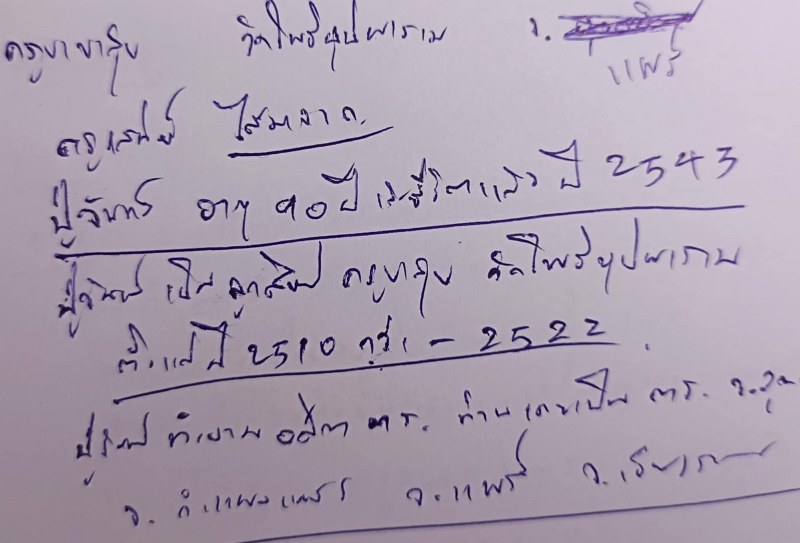 ครูบาอาสุบ วัดโพธิสุปผาราม จ.
แพร่
ครูเสน่ย์ ไสมาลาด.
ปู่จันทร์ อายุ 90 ปี เสียชีวิตแล้ว ปี 2543
ปู่จันทร์ เป็น ลูกศิษย์ ครูบาสุบ วัดโพธิสุปผาราม
ตั้งแต่ปี 2510 กว่า - 2522.
ปู่จันทร์ ทำงาน อดีต ตร. ท่านเคยเป็น ตร.
จ. กำแพงเพชร จ.แพร่ จ.เชียงราย